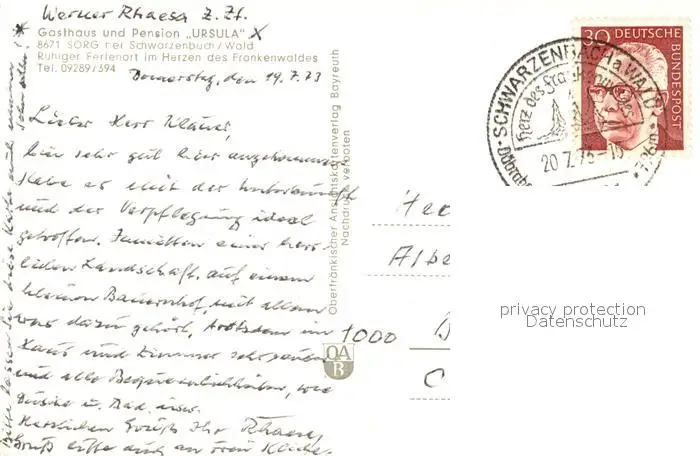 Werner Rhaesa z. Zt.
Gasthaus und Pension „URSULA" X
8671 SORG bei Schwarzenbach/Wald
Ruhiger Ferienort im Herzen des Frankenwaldes
Tel. 09289/394
Donnerstag, den 19.7.73
Lieber Herr
bin sehr gut hier angekommen.
Habe es mit der Unterkunft
und der Verpflegung ideal
getroffen. Inmitten einer herr-
lichen Landschaft, auf einem
kleinen Bauernhof, mit allem
was dazu gehört, trotzdem im
Haus und Zimmer sehr sauber
und alle Bequemlichkeiten, wie
Dusche u. Bad, usw.
Herzlichen Gruß Ihr Rhaesa
Gruß bitte auch an
* Bitte lassen Sie diese Karte auch
Oberfränkischer Ansichtskartenverlag Bayreuth
Nachdruck verboten
OA
B
30
DEUTSCHE BUNDESPOST
SCHWARZENBACH a. WALD
Herz des Frankenwaldes
20.7.73-15
Her
Albe
1000 B
privacy protection
Datenschutz